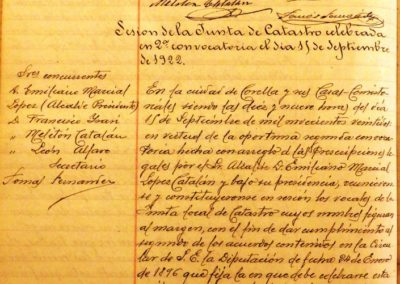 Melitón Catalán
Sesión de la Junta de Catastro celebrada
en 2ª convocatoria el día 15 de Septiembre
de 1922.
Sres concurrentes
D. Emiliano Marcial
López (Alcalde Presidente)
D. Francisco
" Melitón Catalán
" León Alfaro
Secretario
Tomas Fernandez
En la ciudad de Corella y sus Casas Consisto-
riales siendo las diez y nueve horas del día
15 de Septiembre de mil novecientos veintidos
en virtud de la oportuna segunda convoca-
toria hecha con arreglo a las prescripciones le-
gales por el Sr. Alcalde D. Emiliano Marcial
López Catalán y bajo su presidencia, reunieron-
se y constituyeronse en sesión los vocales de la
Junta local de Catastro cuyos nombres figuran
al margen, con el fin de dar cumplimiento al
segundo de los acuerdos contenidos en la Circu-
lar de S. E. la Diputación de fecha 24 de Enero
de 1896 que fija la en que debe celebrarse esta